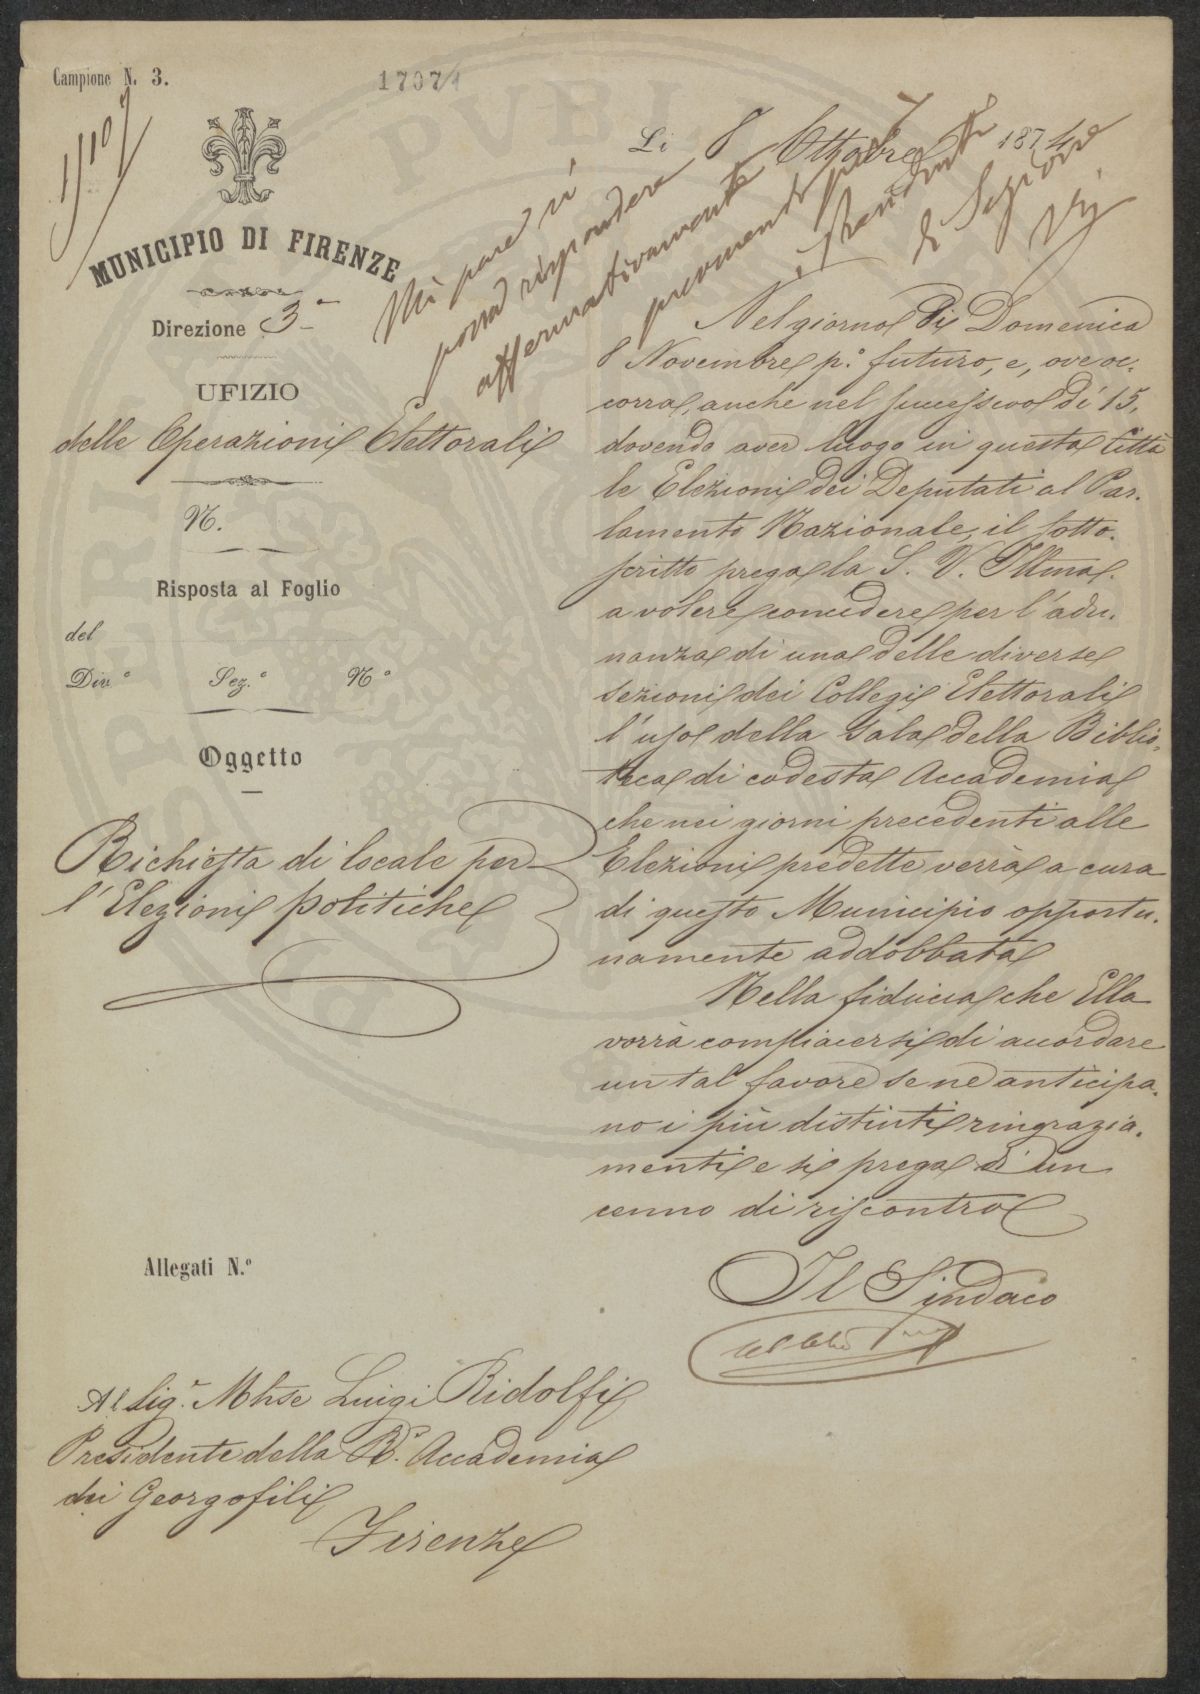 Campione N. 3.
17071
MUNICIPIO DI FIRENZE
Direzione 3a
UFIZIO
delle Operazioni Elettorali
N.
Risposta al Foglio
del
Div.e Sez.e N.o
Oggetto
Richiesta di locale per
l'Elezioni politiche
Allegati N.o
Al Sig.r Mhse Luigi Ridolfi
Presidente della R. Accademia
dei Georgofili
Firenze
Li 8 Ottobre 1874
Mi pare si
possa rispondere
affermativamente
Nel giorno di Domenica
8 Novembre p.o futuro, e, ove oc-
corra, anche nel successivo dí 15,
dovendo aver luogo in questa Città
le Elezioni dei Deputati al Par-
lamento Nazionale, il sotto-
scritto prega la S. V. Illma
a volere concedere per l'adu-
nanza di una delle diverse
sezioni dei Collegi Elettorali
l'uso della sala della Biblio-
teca di codesta Accademia
che nei giorni precedenti alle
Elezioni predette verrà a cura
di questo Municipio opportu-
namente addobbata
Nella fiducia che Ella
vorrà compiacersi di accordare
un tal favore se ne anticipa-
no i più distinti ringrazia-
menti e si prega d'un
cenno di riscontro
Il Sindaco